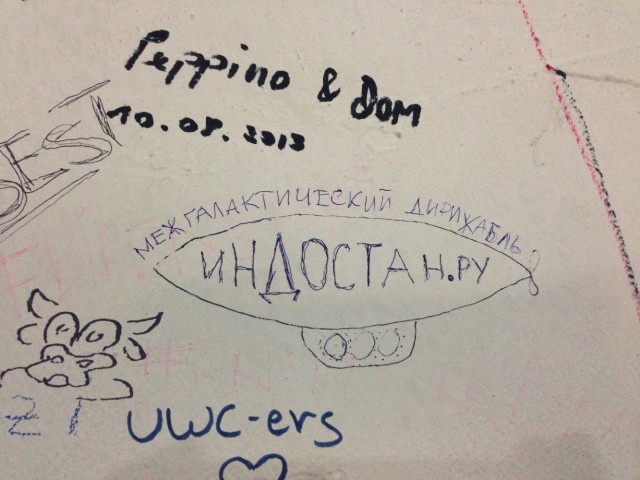 Peppino & Dom
10.08.2013
EST
МЕЖГАЛАКТИЧЕСКИЙ ДИРИЖАБЛЬ
ИНДОСТАН.РУ
21 UWC-ers